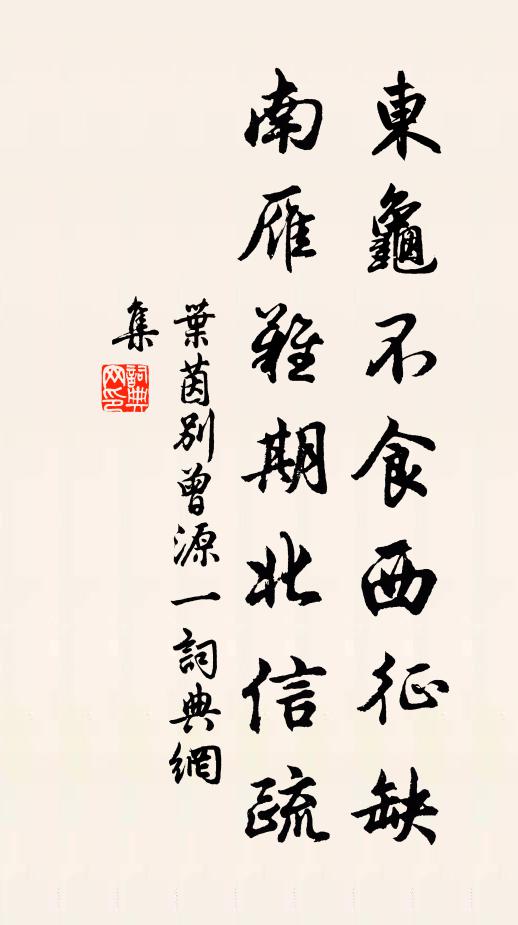 東龜不食西征缺
南雁難期北信疏
葉茵別曾源一詞典網
集
詞典網印